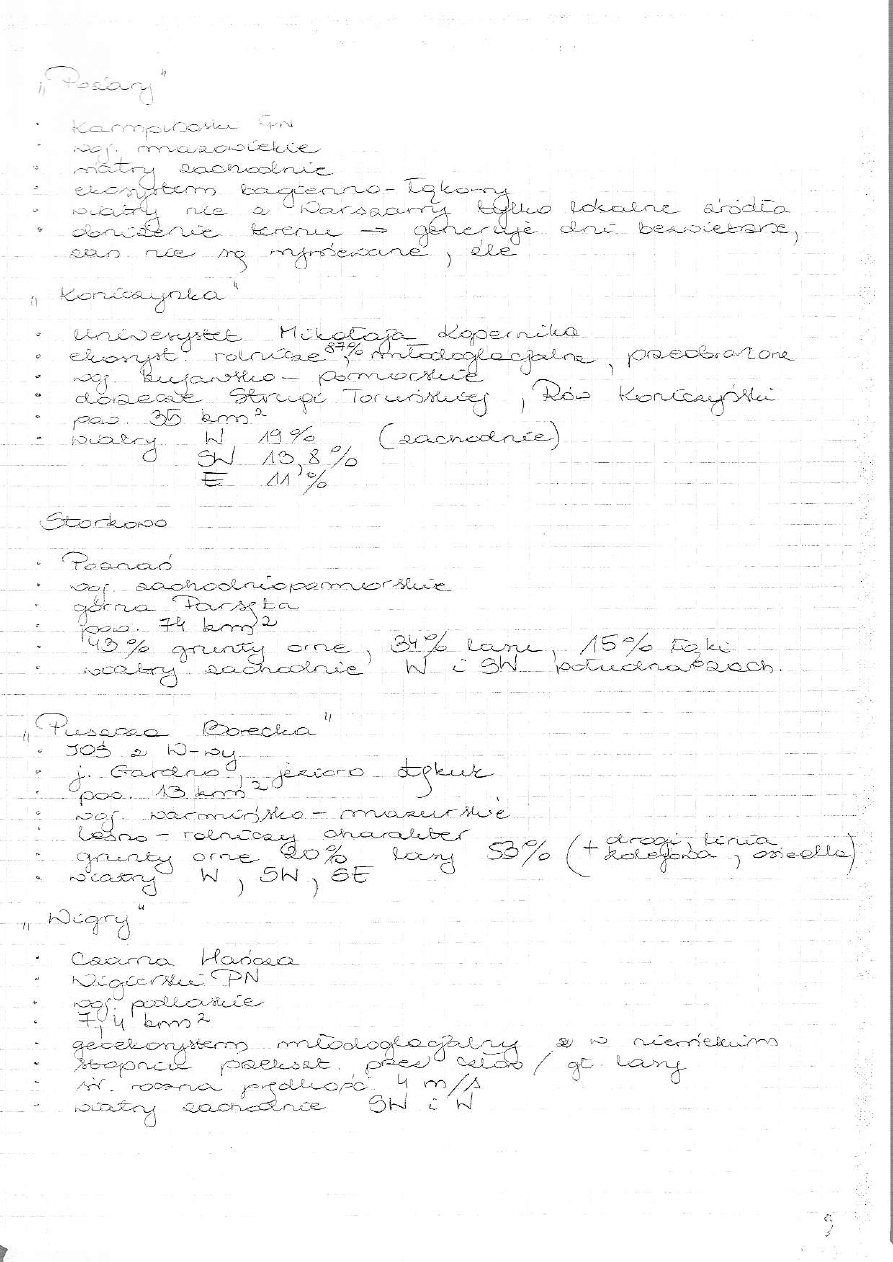 „Pożary"
• Kampinoski PN
• woj. mazowieckie
• wiatry zachodnie
• ekosystem bagienno-łąkowy
• wiatry nie z Warszawy tylko lokalne źródła
• obniżenie terenu → generuje dni bezwietrzne,
zan. nie są wywiewane, źle
„Koniczynka"
• Uniwersystet Mikołaja Kopernika
• ekosyst. rolnicze 87%, młodoglacjalne, przeobrażone
• woj. kujawsko-pomorskie
• dorzecze Strugi Toruńskiej, Rów Koniczyński
• pow. 35 km²
• wiatry W 19% (zachodnie)
SW 13,8%
E 11%
Storkowo
• Poznań
• woj. zachodniopomorskie
• górna Parsęta
• pow. 74 km²
• 43% grunty orne, 34% lasu, 15% łąki
• wiatry zachodnie W i SW południazach.
„Puszcza Borecka"
• IOŚ z W-wy
• j. Gardno, jezioro Łękuk
• pow. 13 km²
• woj. warmińsko-mazurskie
• leśno-rolniczy charakter
• grunty orne 20% lasy 53% (+ drogi, linia
kolejowa, osiedla)
• wiatry W, SW, SE
„Wigry"
• Czarna Hańcza
• Wigierski PN
• woj. podlaskie
• 7,4 km²
• geoekosystem młodoglacjalny z w niewielkim
• stopniu przekszt. przez człow / gł. lasy
• śr. roczna prędkość 4 m/s
• wiatry zachodnie SW i W